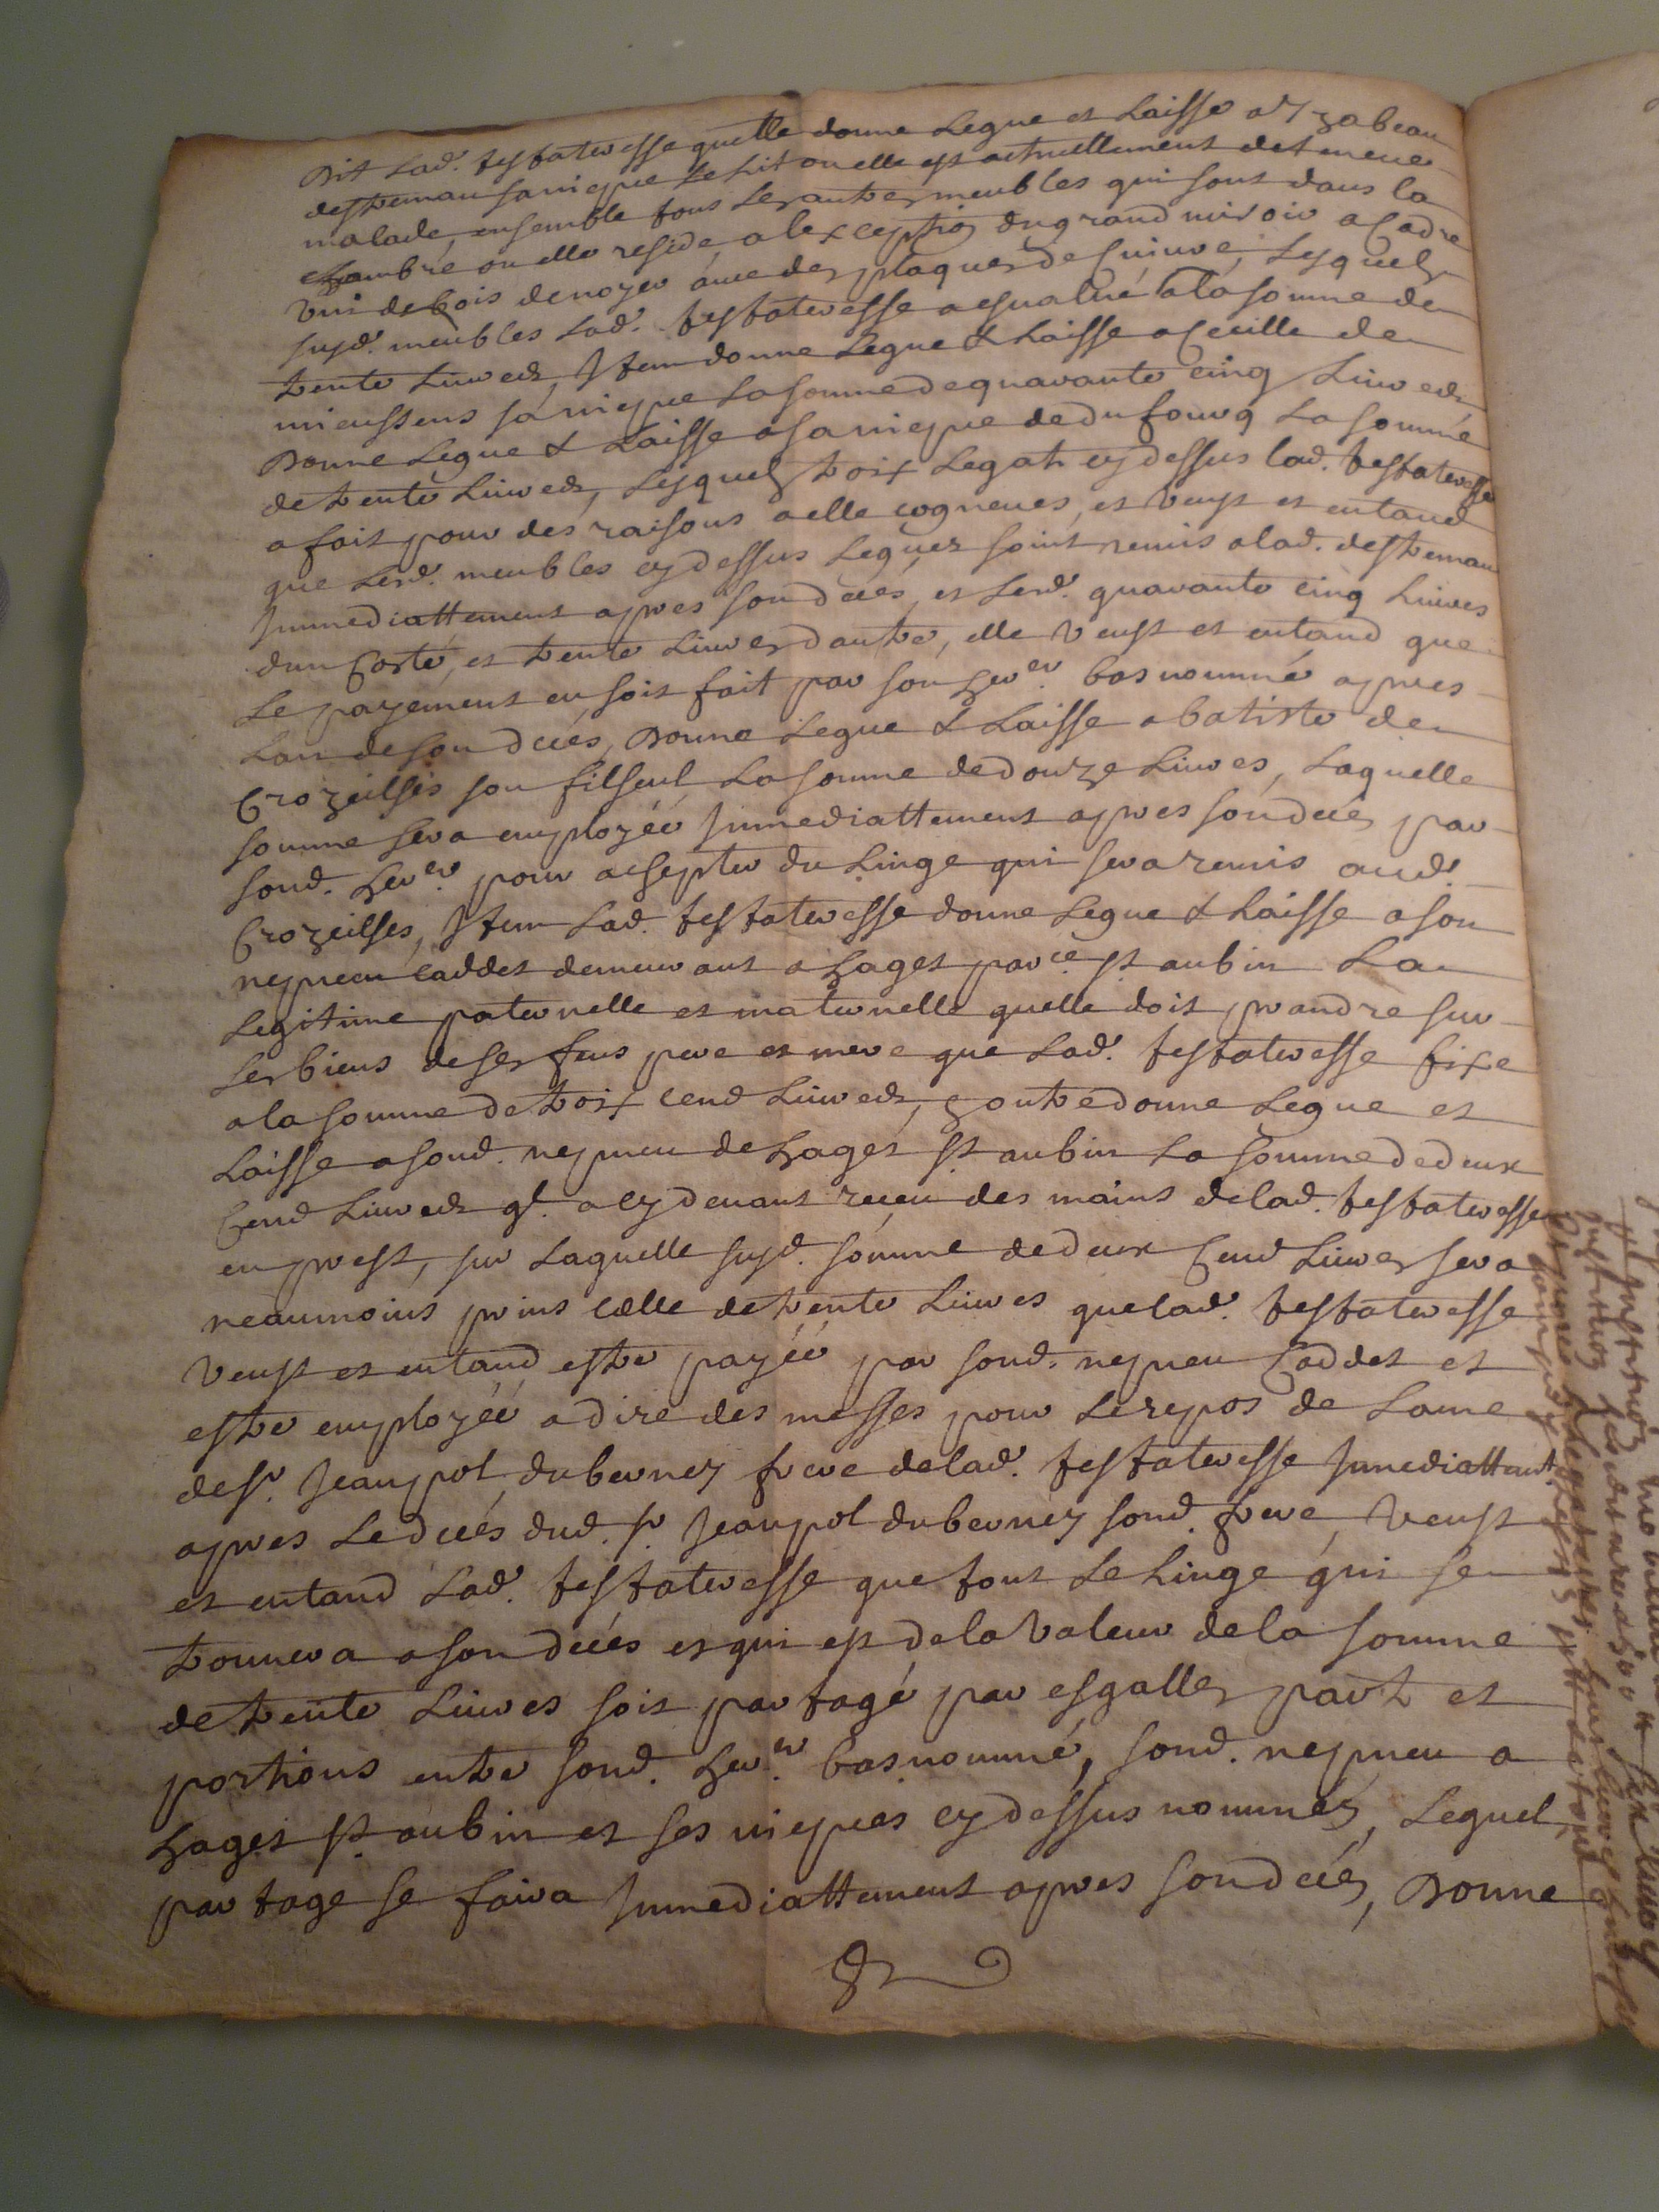 Dit Lad. testatresse quelle donne Legue et Laisse a Yzabeau
destremau sa niepce Le Lit ou elle est actuellement detenue
malade, ensemble tous Les autres meubles qui sont dans la
chambre ou elle reside, a lexception du grand miroir a Cadre
uni de bois de noyer avec des plaques de Cuivre, Lesquels
susd. meubles Lad. testatresse a esvalué a la somme de
trente Livres, Item donne Legue & Laisse a Cecille de
mieussens sa niepce La somme de quarante cinq Livres
Donne Legue & Laisse a sa niepce de dufourg La somme
de trente Livres, Lesquels troix Legats cy dessus lad. testatresse
a fait pour des raisons a elle cogneues, et veust et entand
que Lesd. meubles cy dessus Legues soint remis a lad. destremau
Immediattement apres son decés, et Lesd. quarante cinq Livres
dun Costé, et trente Livres dautre, elle veust et entand que
Le payement en soit fait par son her.er bas nommé apres
Lan de son decés, Donne Legue & Laisse a batiste de
Crozeilles son filseul La somme de douze Livres, Laquelle
somme sera employéé Immediattement apres son decés par
sond. her.er pour achepter du Linge qui sera remis aud.
Crozeilles, Item Lad. testatresse donne Legue & Laisse a son
nepveu caddet demeurant a haget par.ce st aubin La
Legitime paternelle et maternelle quelle doit prandre sur
Les biens de ses feus pere et mere que Lad. testatresse fixe
a la somme de troix cend Livres, & outre donne Legue et
Laisse a sond. nepveu de haget st aubin La somme de deux
Cend Livres ql. a cy devant receu des mains de lad. testatresse
en prest, sur Laquelle susd. somme de deux Cend Livres sera
neaumoins prins cælle de trente Livres que lad. testatresse
Veust et entand estre payéé par sond. nepveu Caddet et
estre employéé a dire des messes pour Le repos de Lame
de sr. Jeanpol duberney frere de lad. testatresse Immediattemt.
apres Le decés dud. sr. Jeanpol dubernéy sond. frere, Veust
et entand Lad. testatresse que tout Le Linge qui se
trouvera a son decés et qui est de la Valeur de la somme
de trente Livres soit partagé par esgalles part et
portions entre sond. her.er bas nommé, sond. nepveu a
haget st aubin et ses niepces cy dessus nommés, Lequel
partage se faira Immediattement apres son decés, Donne